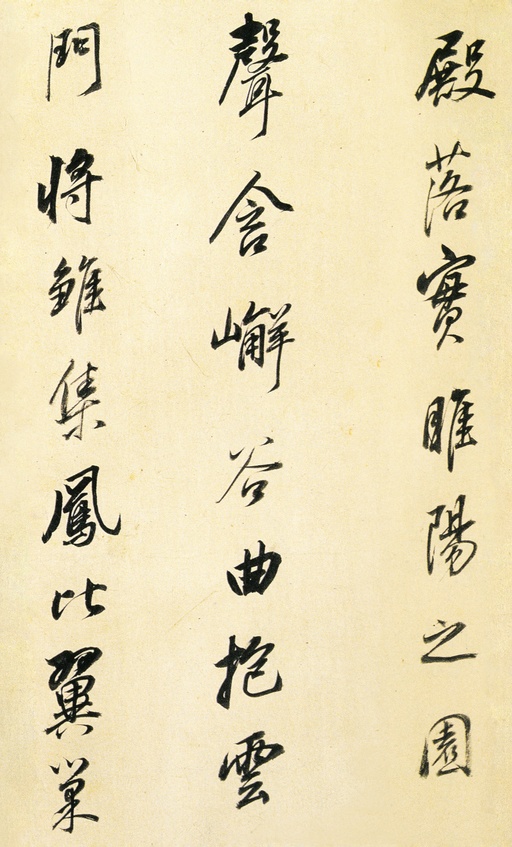 殿落實睢陽之園
聲含嶰谷曲抱雲
門將雛集鳳比翼巢